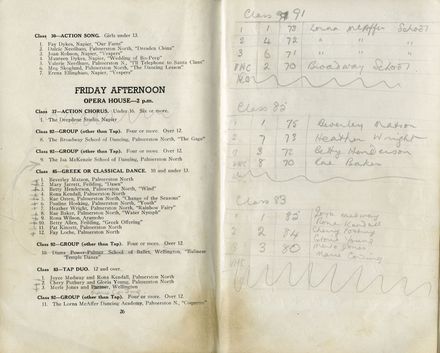 Class 30—ACTION SONG. Girls under 13.
1 Fay Dykes, Napier, "Our Farm"
2 Dulcie Needham, Palmerston North, "Dresden China"
3 Joan Robson, Napier, "Vespers"
4 Maureen Dykes, Napier, "Wedding of Bo-Peep"
5 Valerie Needham, Palmerston N., "I'll Telephone to Santa Claus"
6 Meg Skoglund, Palmerston North, "The Dancing Lesson"
7 Erena Ellingham, Napier, "Vespers"
FRIDAY AFTERNOON
OPERA HOUSE—2 p.m.
Class 37—ACTION CHORUS. Under 16. Six or more.
1. The Deepdene Studio, Napier
Class 92—GROUP (other than Tap). Four or more. Over 12.
8. The Broadway School of Dancing, Palmerston North, "The Gage"
Class 92—GROUP (other than Tap). Four or more. Over 12.
9. The Isa McKenzie School of Dancing, Palmerston North
Class 85—GREEK OR CLASSICAL DANCE. 10 and under 13.
1 Beverley Matson, Palmerston North
2 Mary Jarrett, Feilding, "Dawn"
3 Betty Henderson, Palmerston North, "Wind"
4 Rona Kendall, Palmerston North
5 Rae Oxten, Palmerston North, "Change of the Seasons"
6 Pauline Hosking, Palmerston North, "Youth"
7 Heather Wright, Palmerston North, "Rainbow Fairy"
8 Rae Baker, Palmerston North, "Water Nymph"
9 Rona Wilson, Aramoho
10 Betty Allen, Feilding, "Greek Offering"
11 Pat Kinvett, Palmerston North
12 Fay Loche, Palmerston North
Class 92—GROUP (other than Tap). Four or more. Over 12.
10. Diane Power-Palmer School of Ballet, Wellington, "Balinese
Temple Dance"
Class 83—TAP DUO. 12 and over.
1 Joyce Medway and Rona Kendall, Palmerston North
2 Cherry Puttary and Gloria Young, Palmerston North
3 Merle Jones and Partner, Wellington
Class 92—GROUP (other than Tap). Four or more. Over 12.
11. The Lorna McAffer Dancing Academy, Palmerston N., "Coquettes"
26
Class 91
1 1 73 Lorna McAffer School
2 4 72 " " "
3 6 71 " " "
VHC 2 70 Broadway School
Class 85
1 1 75 Beverley Matson
2 7 73 Heather Wright
3 72 Betty Henderson
VHC 8 70 Rae Baker
Class 83
1 1 85 Joyce Medway
Rona Kendall
2 2 84 Cherry
Gloria Young
3 3 80 Merle Jones